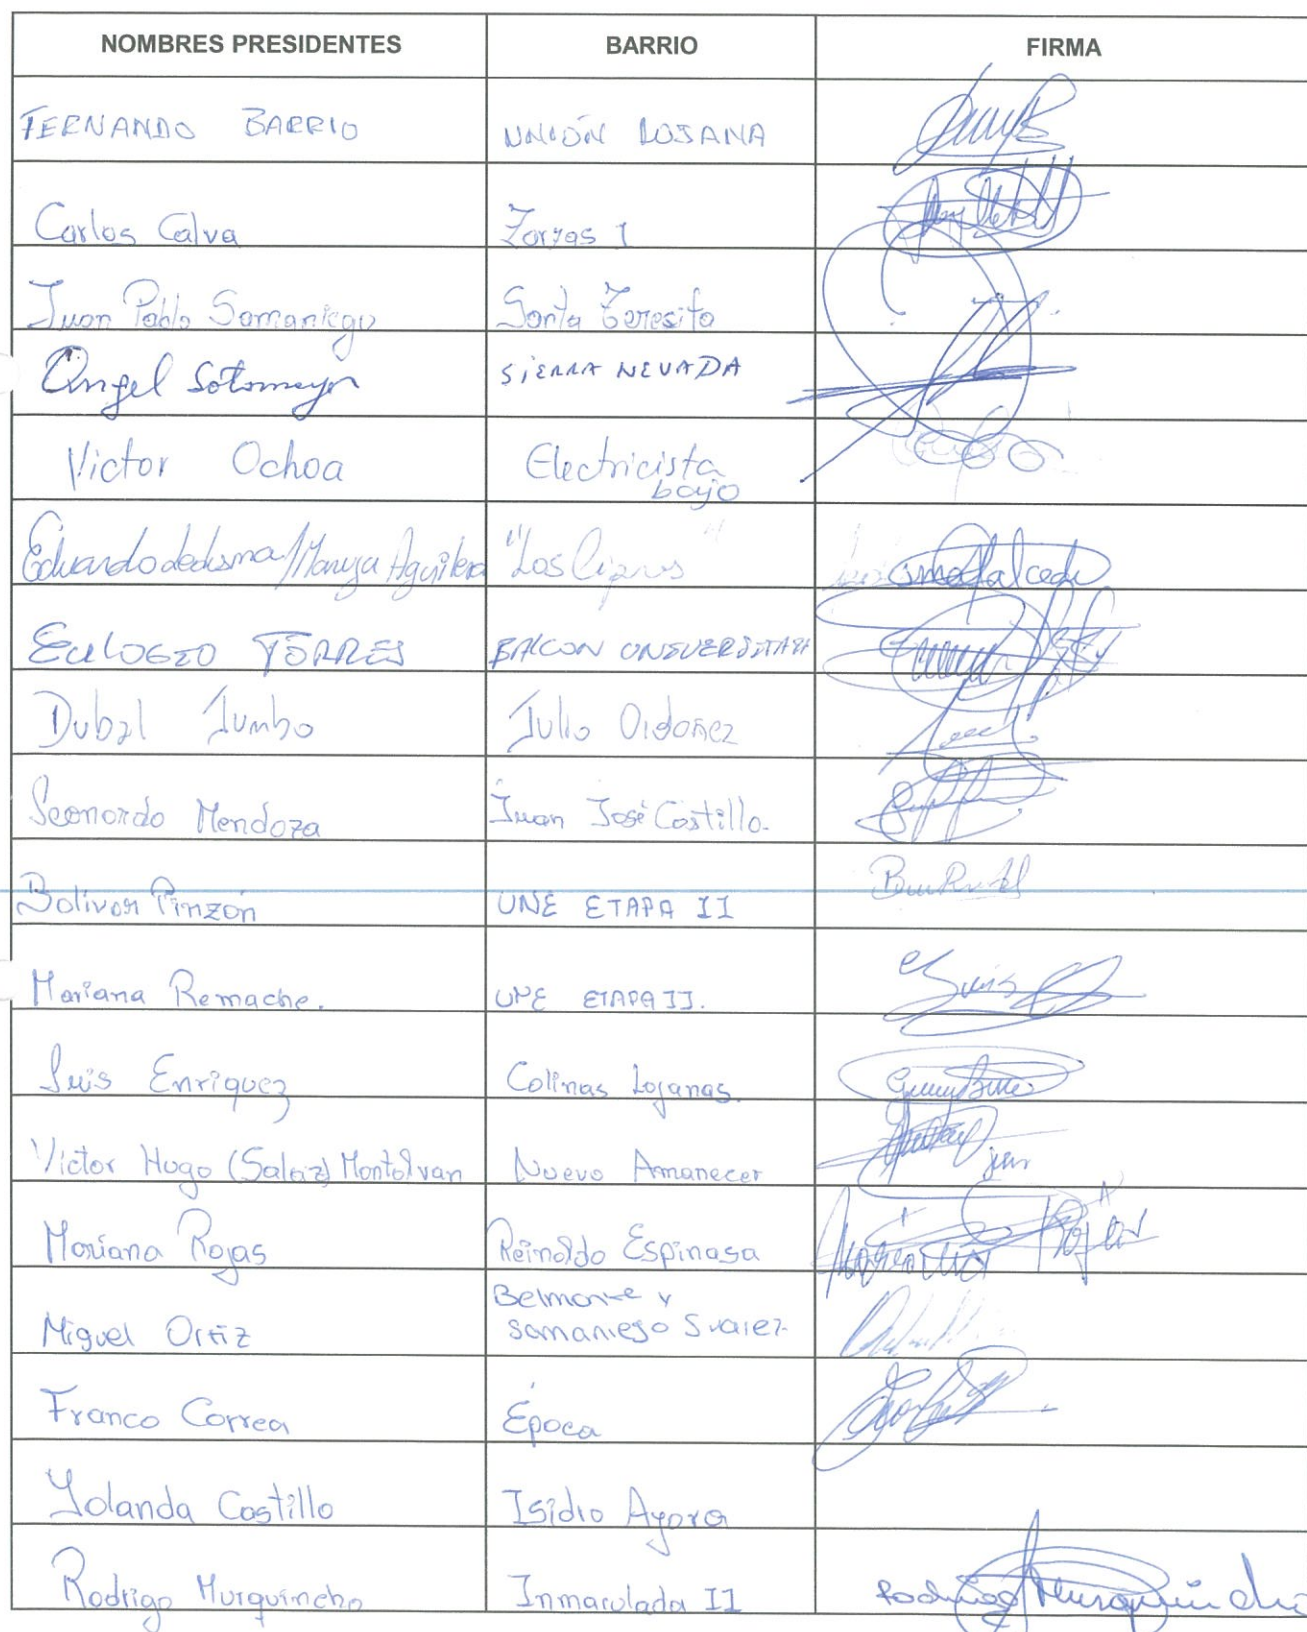 NOMBRES PRESIDENTES BARRIO FIRMA
FERNANDO BARRIO UNIÓN LOJANA
Carlos Calva Zarzas I
Juan Pablo Samaniego Santa Teresita
Angel Sotomayor SIERRA NEVADA
Victor Ochoa Electricista
bajo
Eduardo Ledesma/Manya Aguilera "Los "
EULOGIO TORRES BALCON UNIVERSITARI
Dubal Jumbo Julio Ordoñez
Leonardo Mendoza Juan José Castillo.
Bolivar Pinzón UNE ETAPA II
Mariana Remache. UNE ETAPA II.
Luis Enriquez Colinas Lojanas.
Victor Hugo (Salaiz) Montolvan Nuevo Amanecer
Mariana Rojas Reinaldo Espinasa Rojas
Belmonte y
Miguel Ortiz Samaniego Suarez
Franco Correa Época
Yolanda Castillo Isidro Ayora
Rodrigo Murquincho Inmaculada II Rodrigo Murquincho